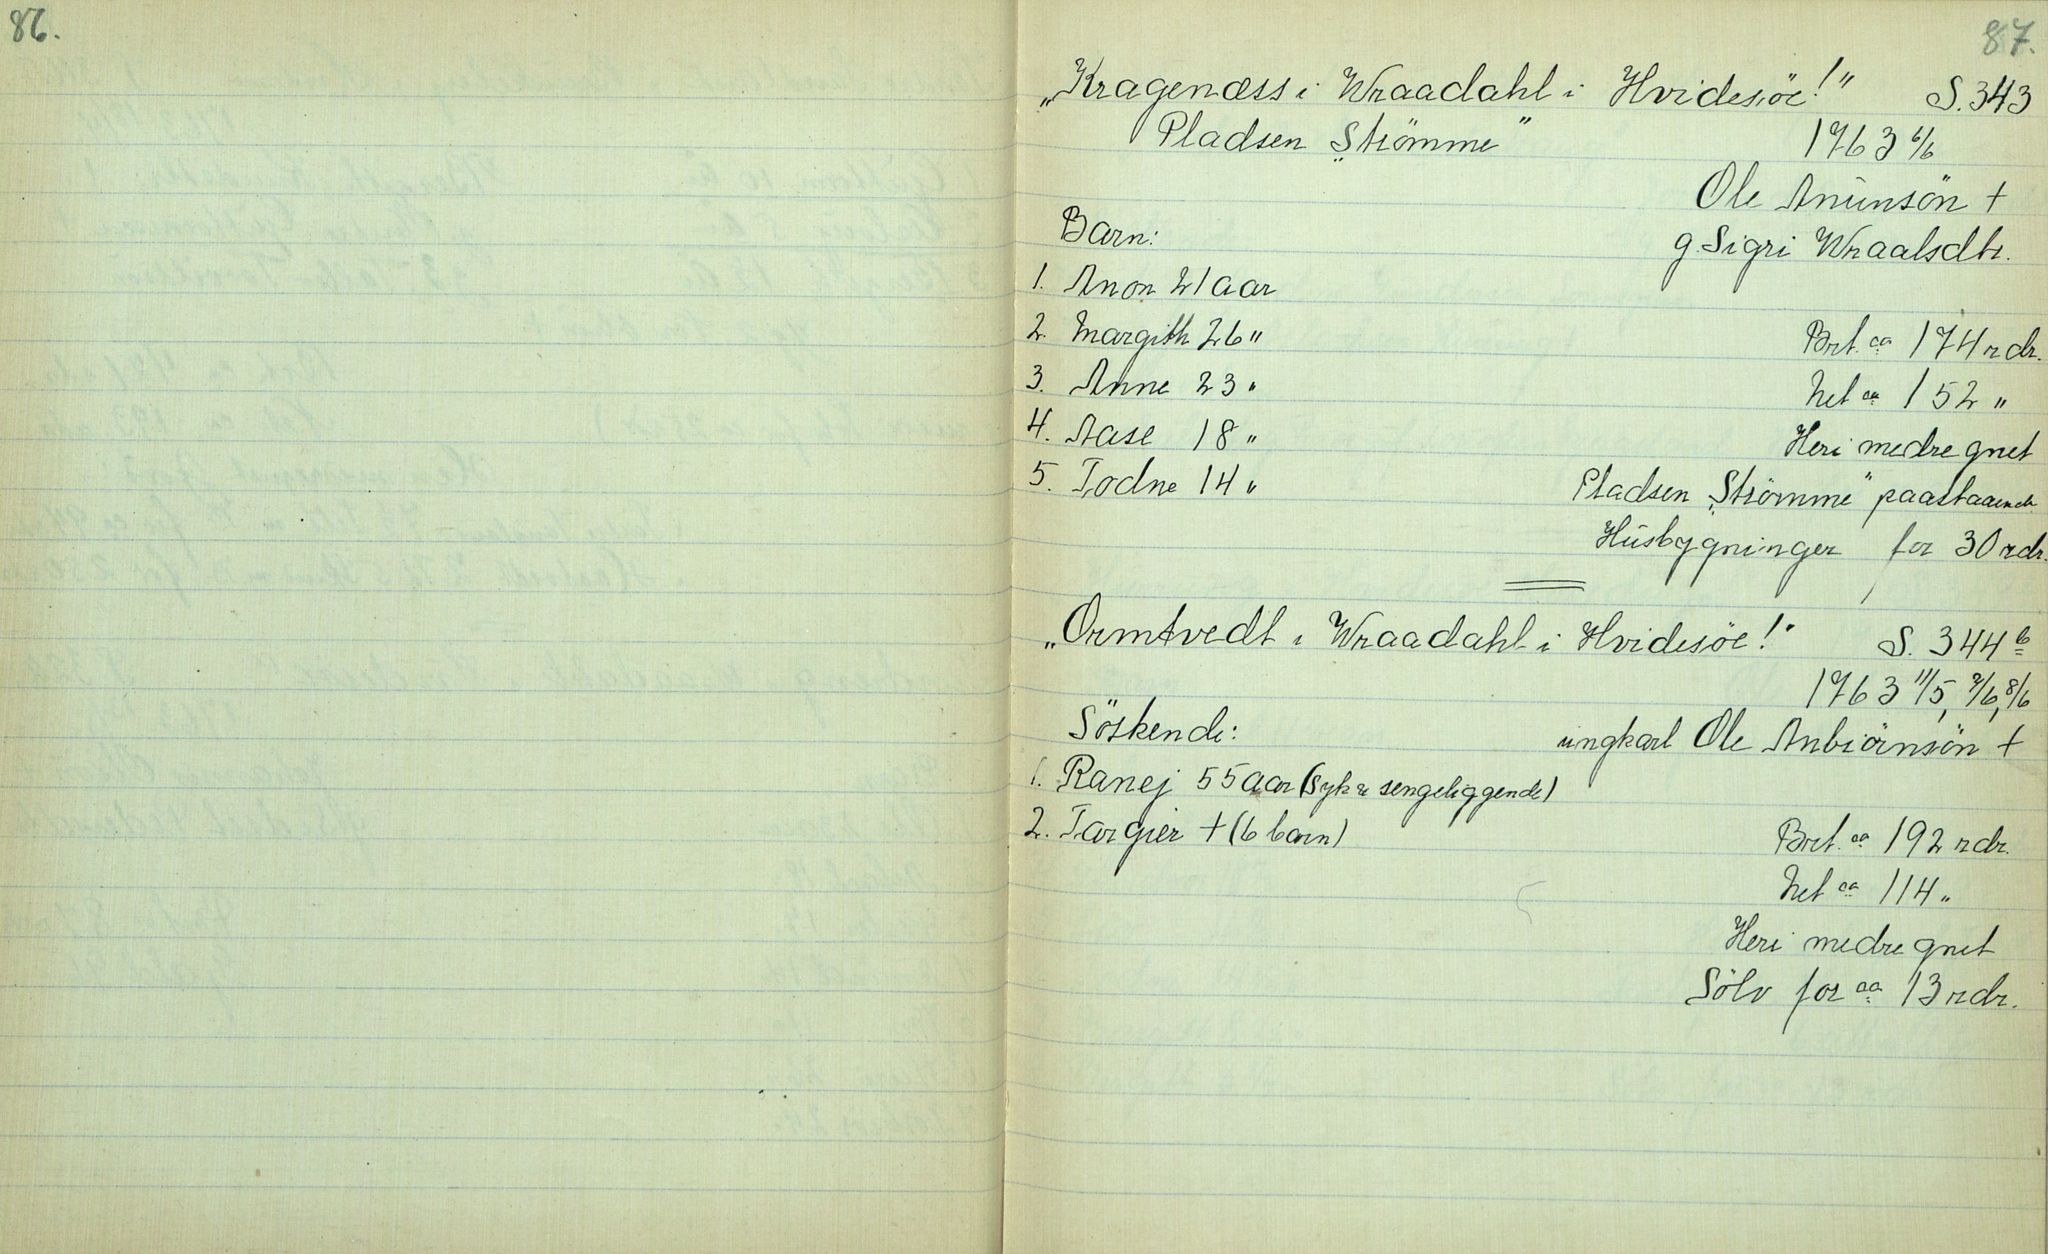 86.
87.
„Kragenæss i Wraadahl i Hvidesöe!" S. 343
Pladsen „Strömme" 1763 6/6
Ole Anunsön +
g. Sigri Wraalsdtr.
Barn:
1. Anon 21 aar
2. Margith 26 "
3. Anne 23 "
4. Aase 18 "
5. Todne 14 "
Brt. ca 174 rdr.
Net ca 152 "
Heri medregnet
Pladsen „Strömme" paastaaende
Husbygninger for 30 rdr.
„Ormtvedt i Wraadahl i Hvidesöe!" S. 344 b
1763 11/5, 7/6, 8/6
ungkarl Ole Anbiörnsön +
Söskende:
1. Ranej 55 aar (syk & sengeliggende)
2. Targier + (6 barn)
Brt. ca 192 rdr.
Net ca 114 "
Heri medregnet
Sölv for ca 13 rdr.